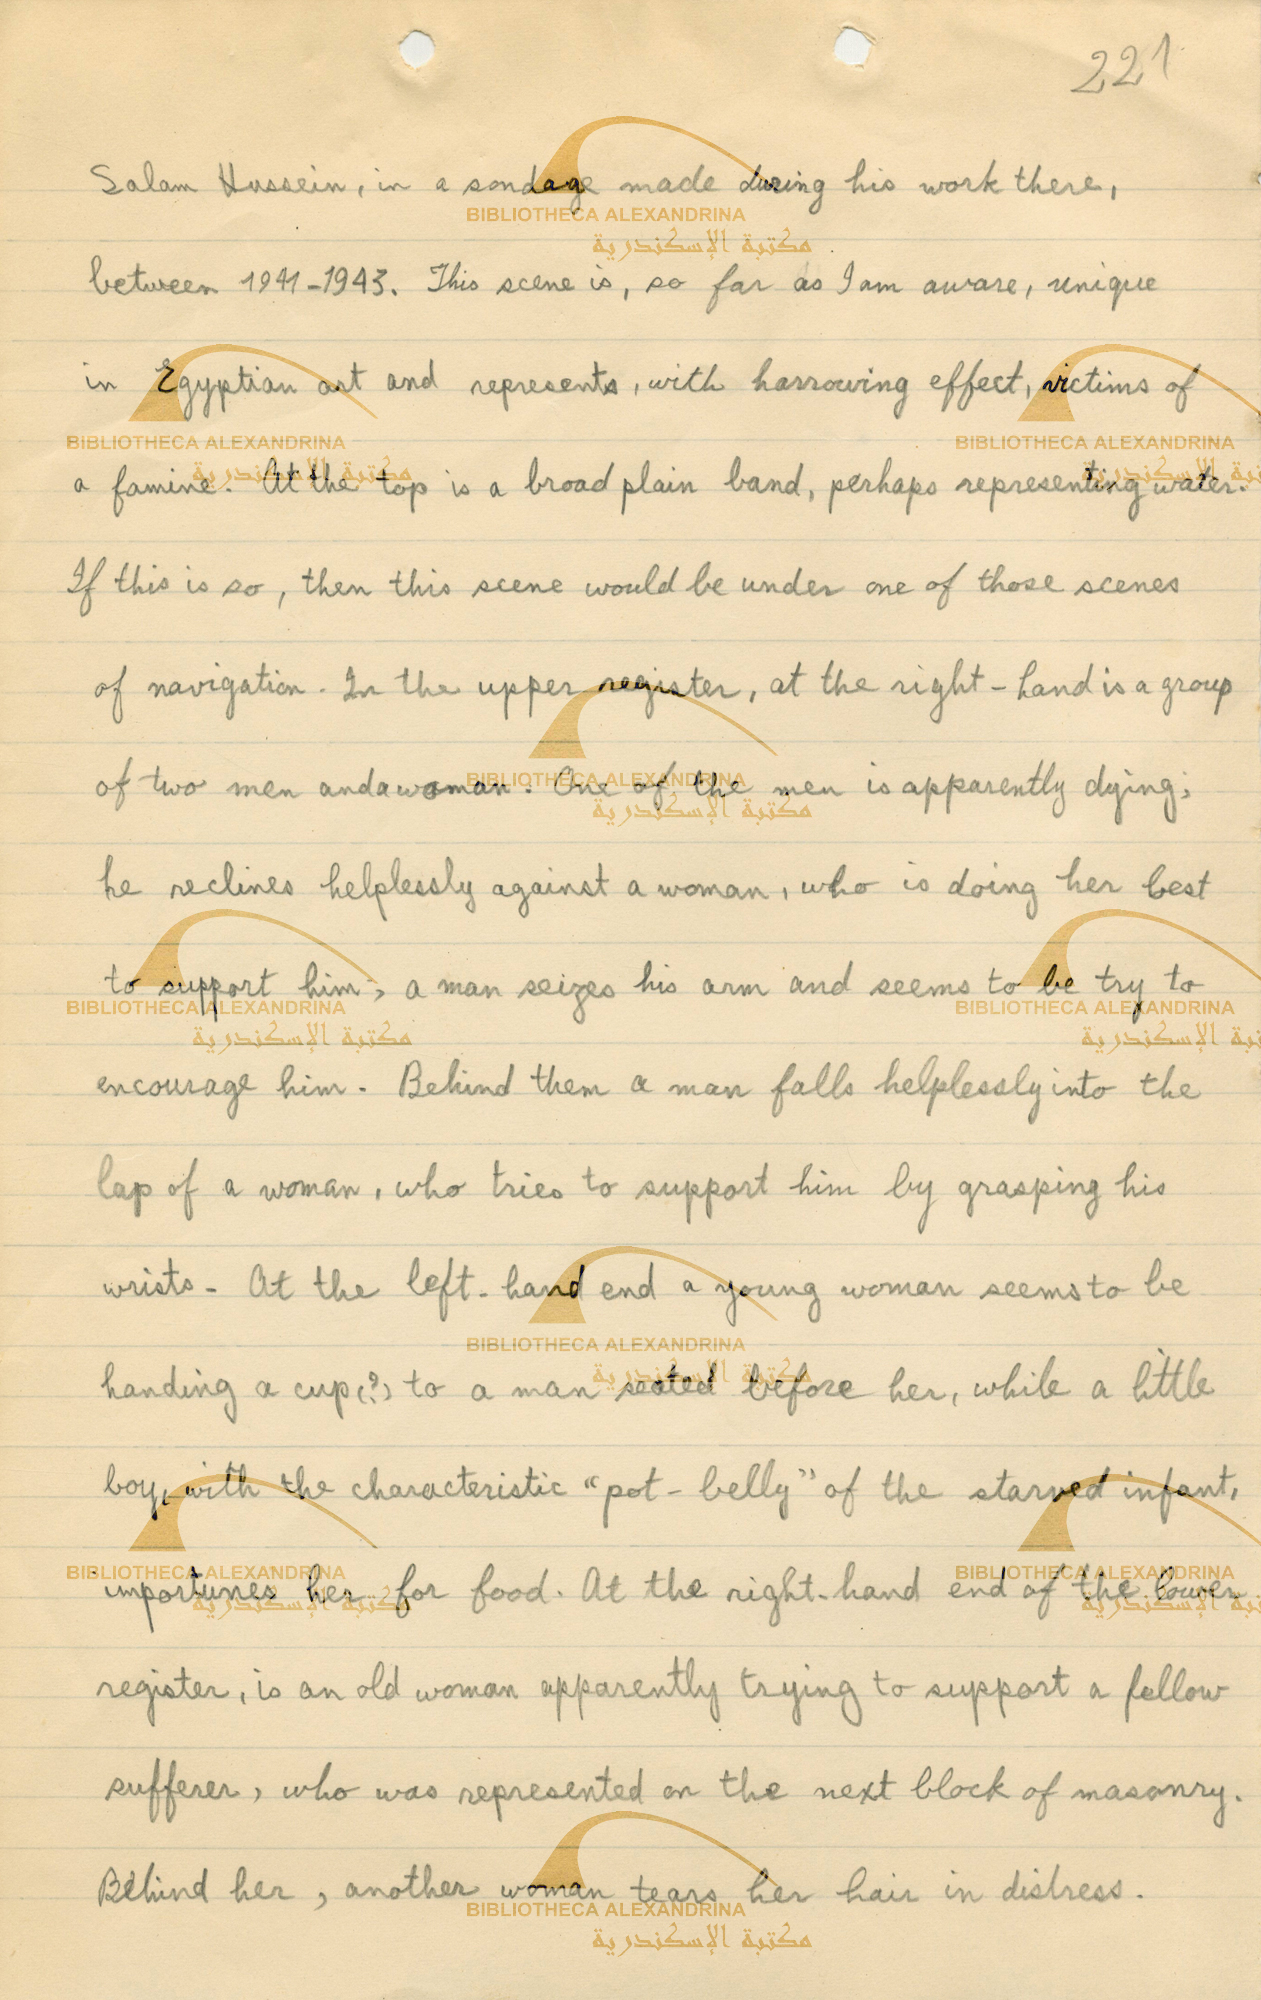 221
Salam Hussein, in a sondage made during his work there,
between 1941-1943. This scene is, so far as I am aware, unique
in Egyptian art and represents, with harrowing effect, victims of
a famine. At the top is a broad plain band, perhaps representing water.
If this is so, then this scene would be under one of those scenes
of navigation. In the upper register, at the right-hand is a group
of two men and a woman. One of the men is apparently dying;
he reclines helplessly against a woman, who is doing her best
to support him; a man seizes his arm and seems to be try to
encourage him. Behind them a man falls helplessly into the
lap of a woman, who tries to support him by grasping his
wrists. At the left-hand end a young woman seems to be
handing a cup(?) to a man seated before her, while a little
boy, with the characteristic "pot-belly" of the starved infant,
importunes her for food. At the right-hand end of the lower
register, is an old woman apparently trying to support a fellow
sufferer, who was represented on the next block of masonry.
Behind her, another woman tears her hair in distress.
BIBLIOTHECA ALEXANDRINA
مكتبة الإسكندرية